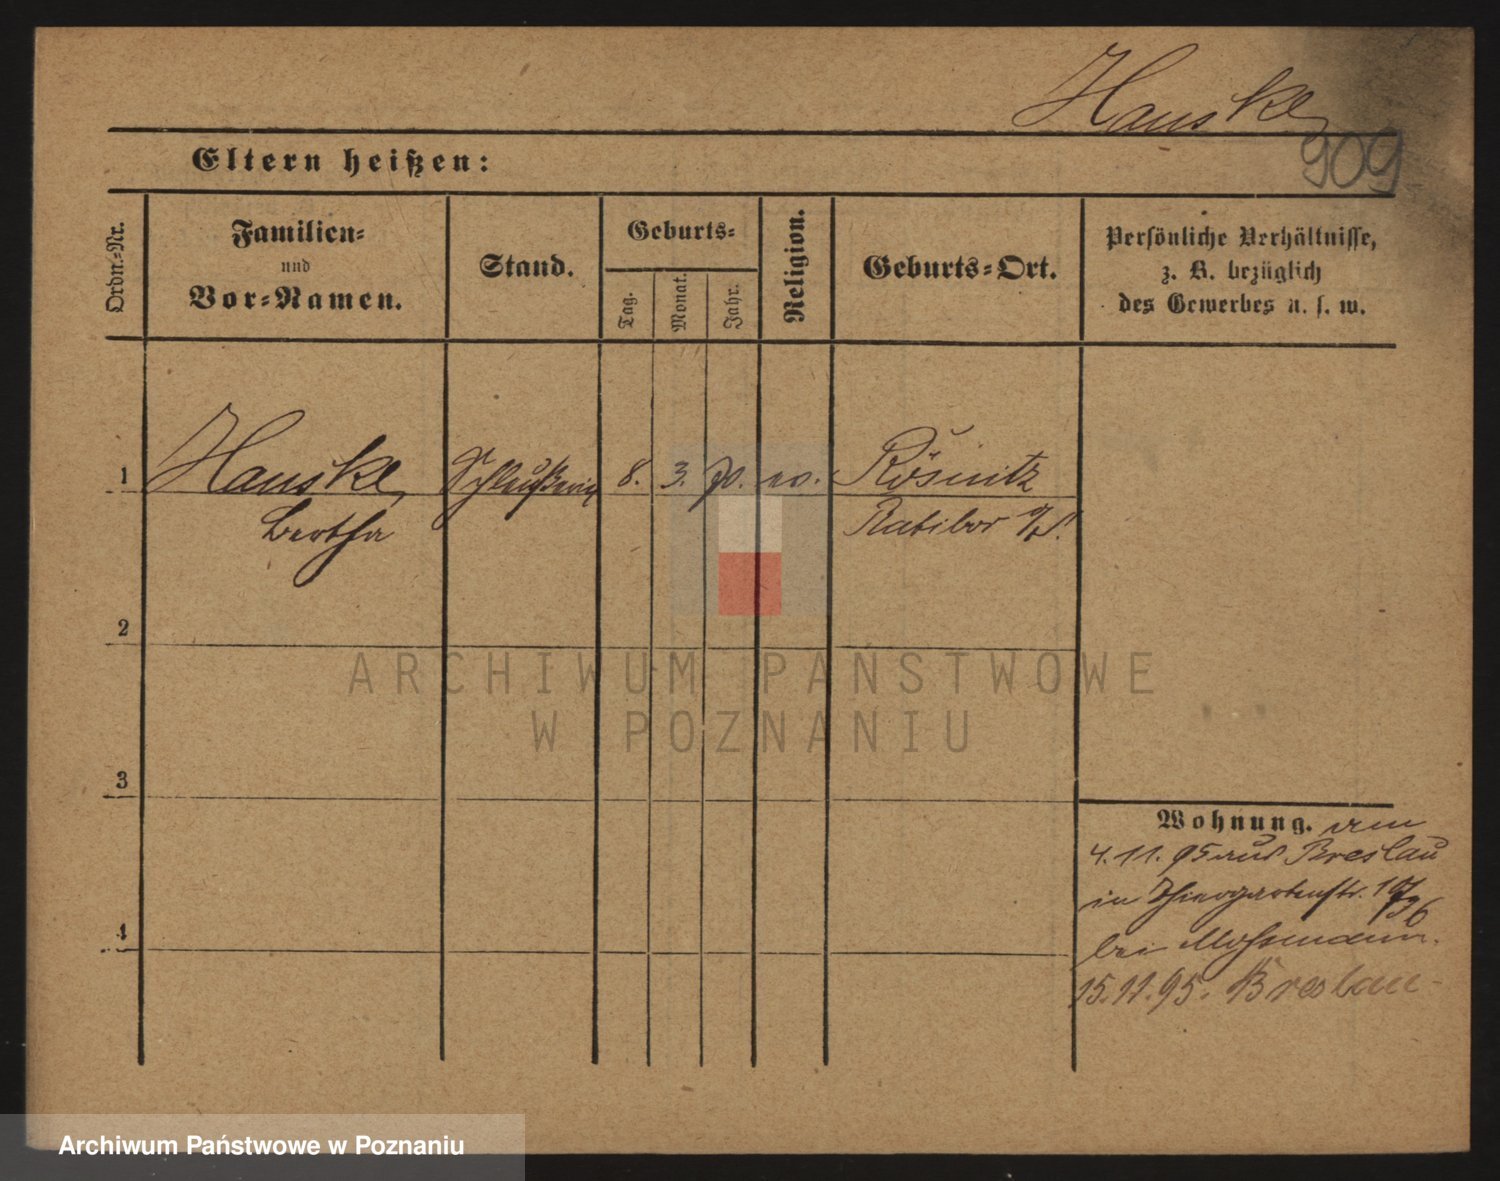 Hanske
909
Eltern heißen:
Ordn.-Nr.
Familien-
und
Vor-Namen.
Stand.
Geburts-
Tag.
Monat.
Jahr.
Religion.
Geburts-Ort.
Persönliche Verhältnisse,
z. B. bezüglich
des Gewerbes u. s. w.
1 Hanske 8. 3. 70. ev. Rösnitz
Bertha Ratibor O/S.
2
3
4
Wohnung. am
4.11.95 aus Breslau
in Thiergartenstr.
bei
15.11.95. Breslau
ARCHIWUM PAŃSTWOWE
W POZNANIU
Archiwum Państwowe w Poznaniu